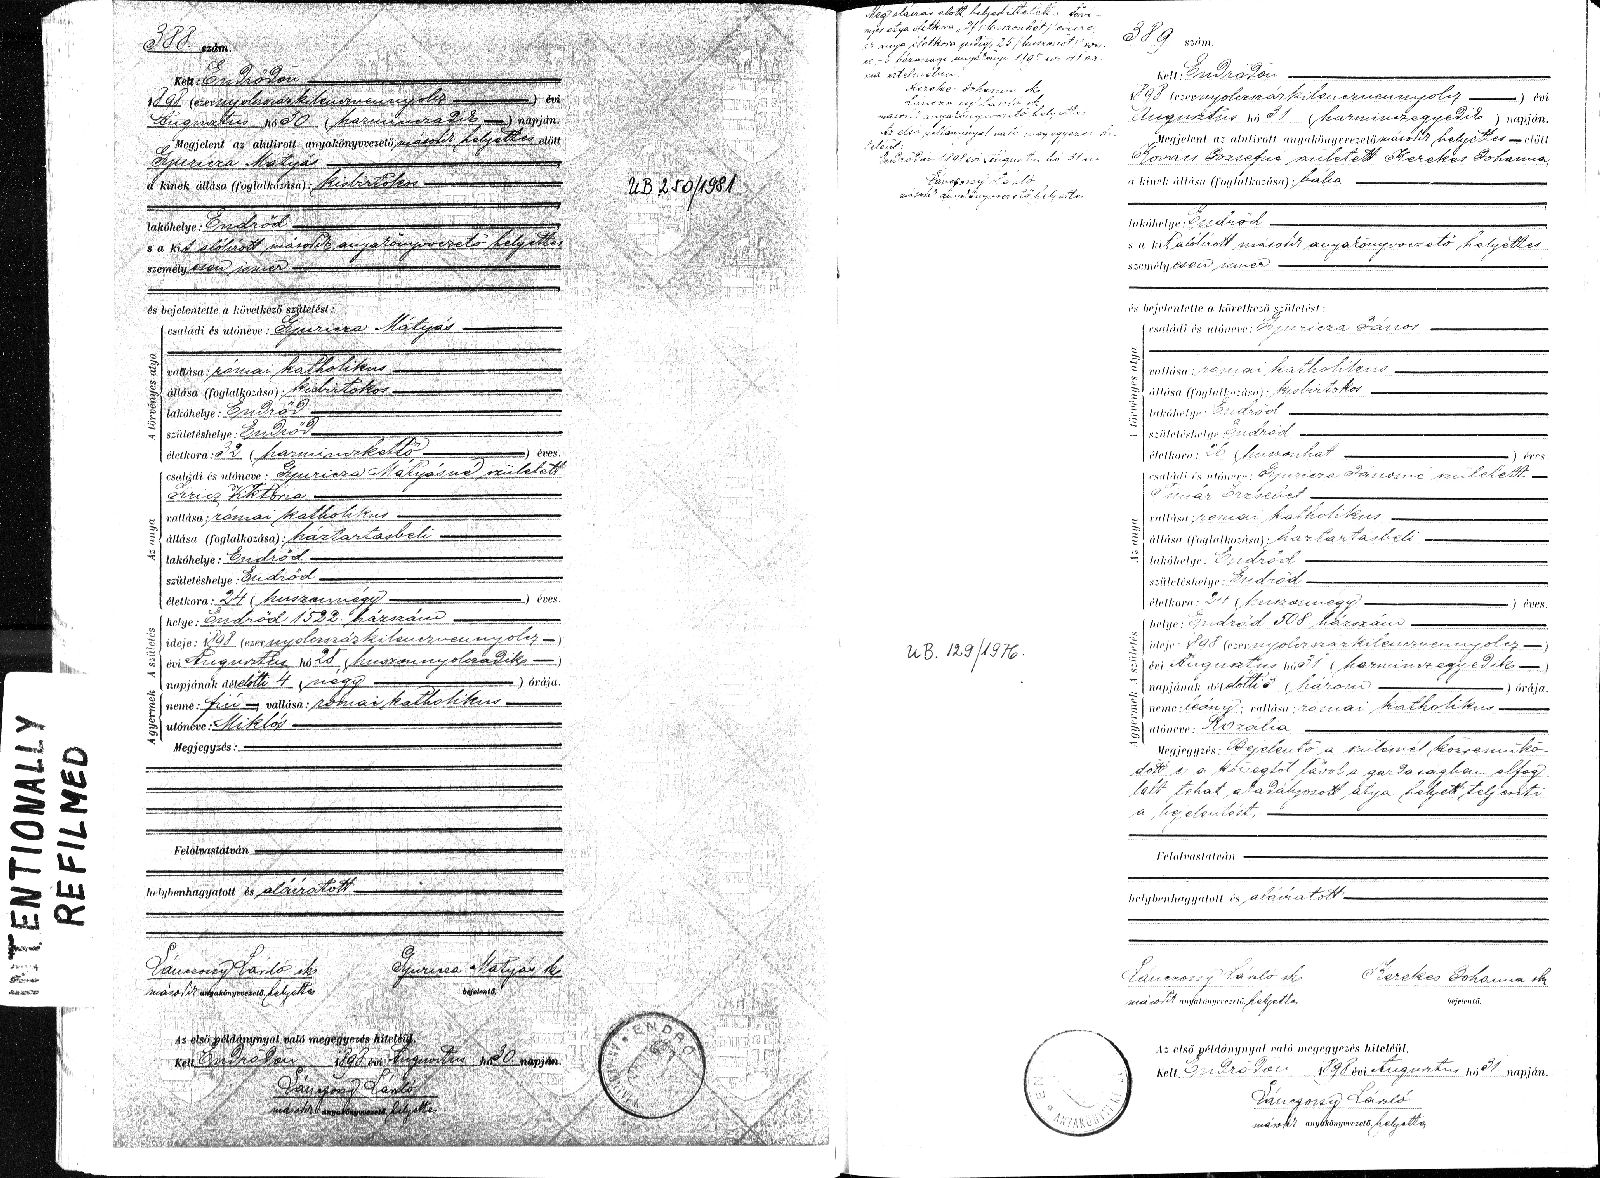 388. szám.
Kelt: Endrődön
1898 (ezernyolczszázkilenczvennyolcz) évi
Augusztus hó 30 (harminczadik) napján.
Megjelent az alulirott anyakönyvvezető másodif helyettes előtt
Gyuricza Mátyás
a kinek állása (foglalkozása): kisbirtokos
UB 250/1981
lakóhelye: Endrőd
s a kit alólirott másodif anyakönyvvezető helyettes
személyesen ismer
és bejelentette a következő születést:
A törvényes atya
családi és utóneve: Gyuricza Mátyás
vallása: római katholikus
állása (foglalkozása): kisbirtokos
lakóhelye: Endrőd
születéshelye: Endrőd
életkora: 32 (harminczkettő) éves.
Az anya
családi és utóneve: Gyuricza Mátyásné született
Viktória
vallása: római katholikus
állása (foglalkozása): háztartásbeli
lakóhelye: Endrőd
születéshelye: Endrőd
életkora: 24 (huszonnégy) éves.
A születés
helye: Endrőd 1522 házszám
ideje: 1898 (ezernyolczszázkilenczvennyolcz)
évi Augusztus hó 28 (huszonnyolczadik)
napjának délelőtti 4 (négy) órája.
A gyermek
neme: fiú; vallása: római katholikus
utóneve: Miklós
Megjegyzés:
Felolvastatván
helybenhagyatott és aláiratott
Lánczossy László sk
másodif anyakönyvvezető helyettes
Gyuricza Mátyás sk
bejelentő.
Az első példánynyal való megegyezés hiteléül,
Kelt Endrődön 1898 évi Augusztus hó 30 napján.
Lánczossy László
másodif anyakönyvvezető helyettes
ENDRŐD
INTENTIONALLY
REFILMED
Kerekes Johanna sk
Lánczossy László sk
másodif anyakönyvvezető helyettes
Az első példánnyal való megegyezés
Endrődön 1898 évi Augusztus hó 31 én
Lánczossy László
másodif anyakönyvvezető helyettes
UB. 129/1976.
389 szám.
Kelt: Endrődön
1898 (ezernyolczszázkilenczvennyolcz) évi
Augusztus hó 31 (harminczegyedik) napján.
Megjelent az alulirott anyakönyvvezető másodif helyettes előtt
Kovács Józsefné született Kerekes Johanna
a kinek állása (foglalkozása): bába
lakóhelye: Endrőd
s a kit alólirott másodif anyakönyvvezető helyettes
személyesen ismer
és bejelentette a következő születést:
A törvényes atya
családi és utóneve: Gyuricza János
vallása: római katholikus
állása (foglalkozása): kisbirtokos
lakóhelye: Endrőd
születéshelye: Endrőd
életkora: 26 (huszonhat) éves
Az anya
családi és utóneve: Gyuricza Jánosné született
Tímár Erzsébet
vallása: római katholikus
állása (foglalkozása): háztartásbeli
lakóhelye: Endrőd
születéshelye: Endrőd
életkora: 24 (huszonnégy) éves.
A születés
helye: Endrőd 508 házszám
ideje: 1898 (ezernyolczszázkilenczvennyolcz)
évi Augusztus hó 31 (harminczegyedik)
napjának délelőtti 3 (három) órája.
A gyermek
neme: leány; vallása: római katholikus
utóneve: Rozália
Megjegyzés: Bejelentő a szülésnél közreműkö-
dött s a községtől távol a gazdaságban elfog
lalt, tehát akadályozott atya helyett teljesiti
a bejelentést.
Felolvastatván
helybenhagyatott és aláiratott
Lánczossy László sk
másodif anyakönyvvezető, helyettes
Kerekes Johanna sk
bejelentő.
Az első példánynyal való megegyezés hiteléül,
Kelt, Endrődön 1898 évi Augusztus hó 31 napján.
Lánczossy László
másodif anyakönyvvezető helyettes